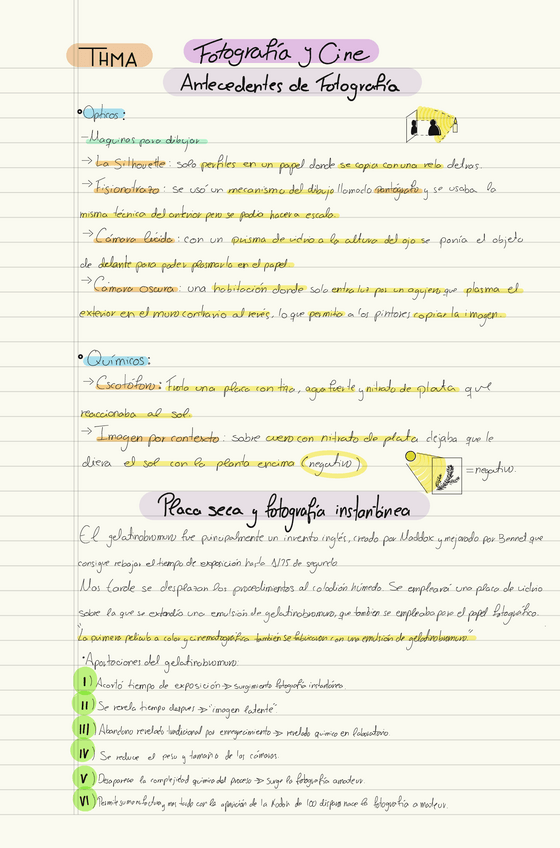 THMA
Fotografía y Cine
Antecedentes de Fotografía
Ópticos:
-Maquinas para dibujar
→ La Silhouette: solo perfiles en un papel donde se copia con una vela detras.
→ Fisionotrazo: se usó un mecanismo del dibujo llamado pantógrafo y se usaba la
misma técnica del anterior pero se podía hacer a escala.
→ Cámara lúcida: con un prisma de vidrio a la altura del ojo se ponía el objeto
de delante para poder plasmarlo en el papel
→ Cámara oscura: una habitación donde solo entra luz por un agujero que plasma el
exterior en el muro contrario al revés, lo que permite a los pintores copiar la imagen.
Químicos:
→ Escotóforo: Frota una placa con tiza, agua fuerte y nitrato de plata que
reaccionaba al sol.
→ Imagen por contexto: sobre cuero con nitrato de plata dejaba que le
diera el sol con la planta encima (negativo)
=negativo.
Placa seca y fotografía instantánea
El gelatinobromuro fue principalmente un invento inglés, creado por Maddox y mejorado por Bennet que
consigue rebajar el tiempo de exposición hasta 1/75 de segundo.
Mas tarde se desplazan los procedimientos al colodión húmedo. Se empleará una placa de vidrio
sobre la que se extendía una emulsión de gelatinobromuro, que tambien se empleaba para el papel fotográfico.
"La primera película a color y cinematográfica también se fabricaron con una emulsión de gelatinobromuro"
·Aportaciones del gelatinobromuro:
I) Acortó tiempo de exposición => surgimiento fotografía instantánea.
II) Se revela tiempo despues => "imagen latente"
III) Abandono revelado tradicional por ennegrecimiento => revelado químico en laboratorio.
IV) Se reduce el peso y tamaño de las cámaras.
V) Desaparece la complejidad química del proceso => surge la fotografía amateur.
VI) Permite su manofactura y mas tarde con la aparición de la Kodak de 100 disparos nace la fotografía amateur.